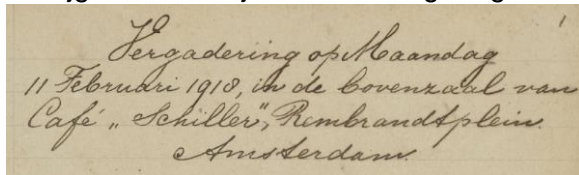 Vergadering op Maandag
11 Februari 1918, in de bovenzaal van
Café „Schiller”, Rembrandtplein
Amsterdam.